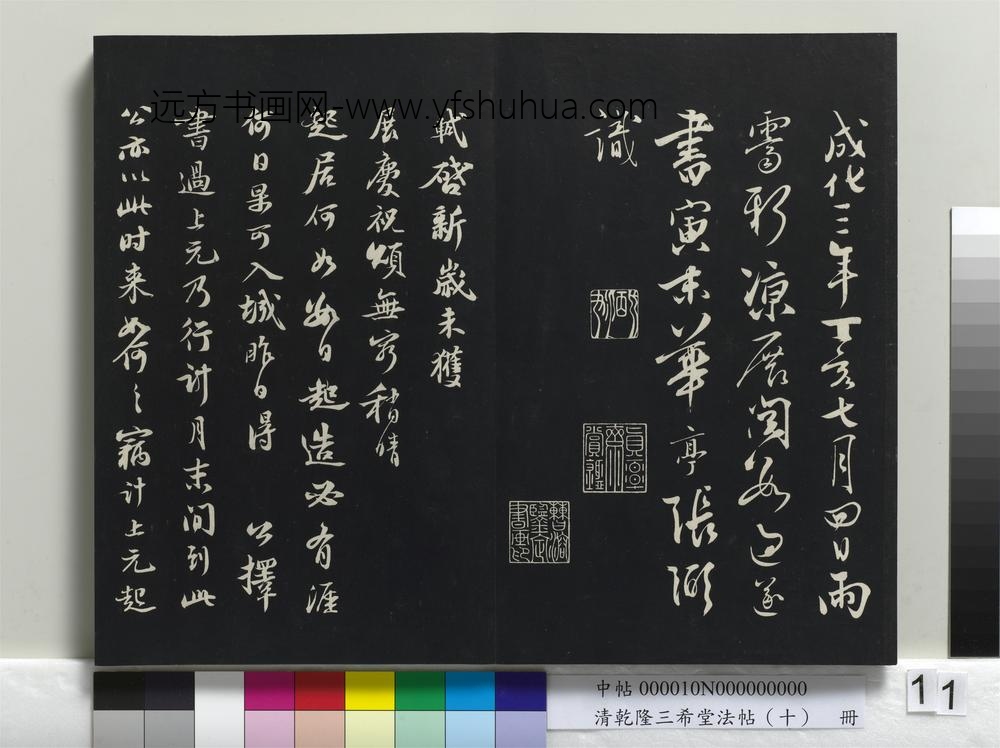 成化三年丁亥七月四日雨
霽新涼展閱數過遂
書寅末華亭張弼
識
軾啓新歲未獲
展慶祝頌無窮稍晴
起居何如數日起造必有涯
何日果可入城昨日得 公擇
書過上元乃行計月末间到此
公亦以此时来如何々竊计上元起
远方书画网-www.yfshuhua.com
中帖 000010N000000000
清乾隆三希堂法帖（十） 冊
11